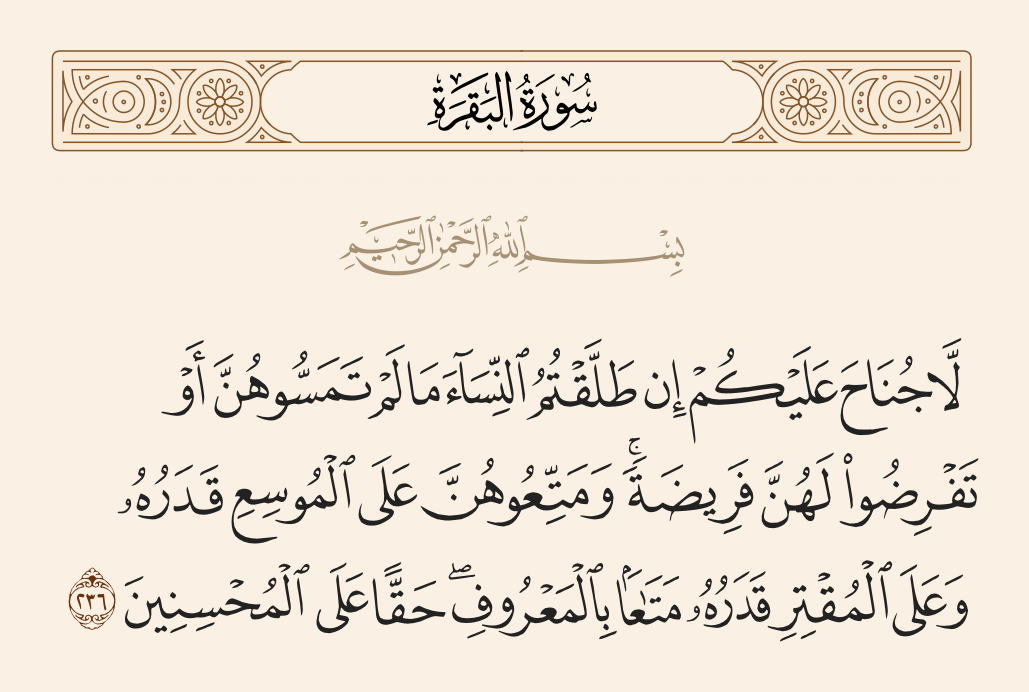 سُورَةُ البَقَرَةِ
بِسْمِ ٱللَّهِ ٱلرَّحْمَٰنِ ٱلرَّحِيمِ
لَّا جُنَاحَ عَلَيْكُمْ إِن طَلَّقْتُمُ ٱلنِّسَآءَ مَا لَمْ تَمَسُّوهُنَّ أَوْ
تَفْرِضُوا۟ لَهُنَّ فَرِيضَةً ۚ وَمَتِّعُوهُنَّ عَلَى ٱلْمُوسِعِ قَدَرُهُۥ
وَعَلَى ٱلْمُقْتِرِ قَدَرُهُۥ مَتَٰعًۢا بِٱلْمَعْرُوفِ ۖ حَقًّا عَلَى ٱلْمُحْسِنِينَ ٢٣٦